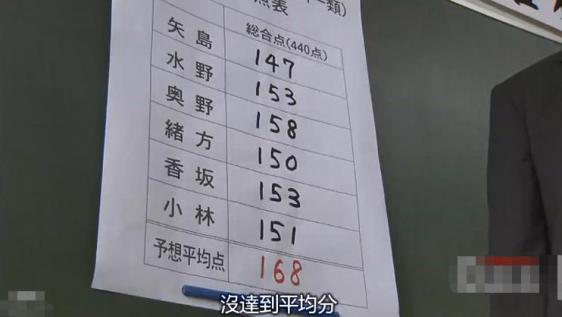 点表
一類)
総合点(440点)
矢島 147
水野 153
奥野 158
緒方 150
香坂 153
小林 151
予想平均点 168
沒達到平均分